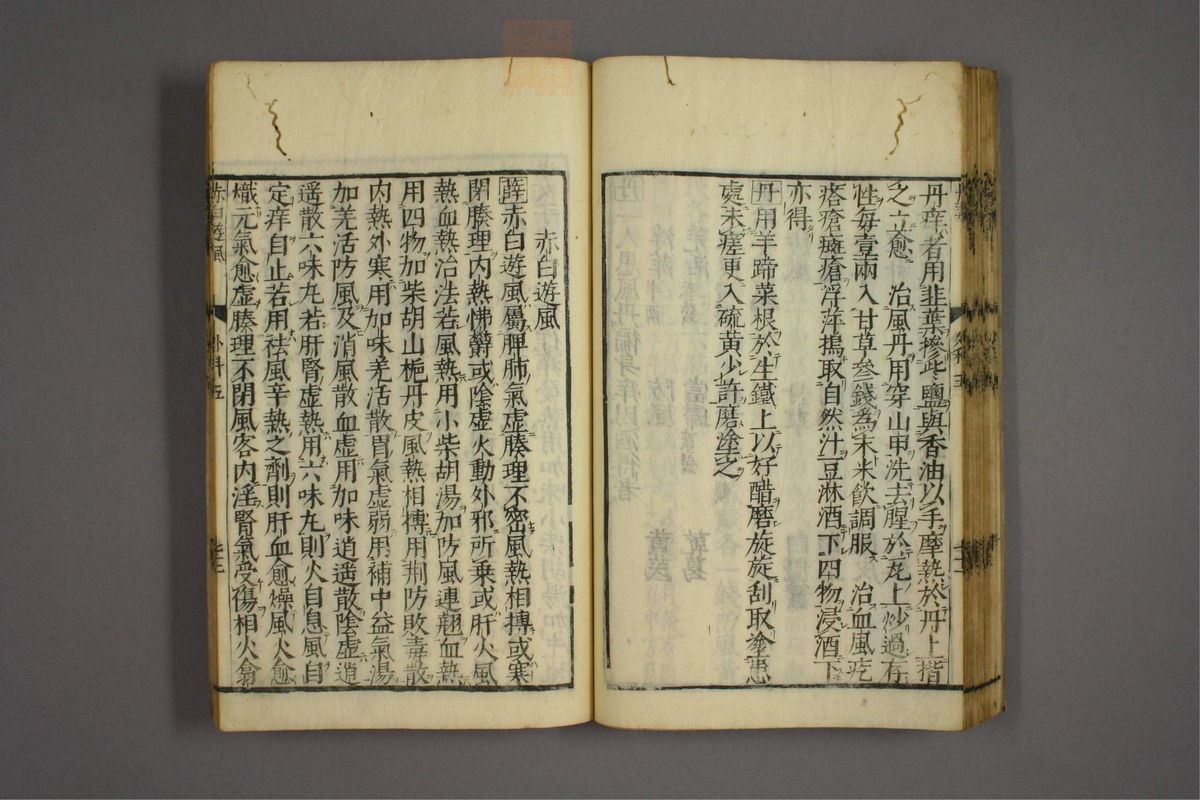 丹痒者用韭葉摻此鹽與香油以手摩熱於丹上揩
之立愈 治風丹用穿山甲洗去腥於瓦上炒過存
性每壹兩入甘草叁錢為末米飲調服 治血風疙
瘩瘡癍瘡浮萍搗取自然汁豆淋酒下四物浸酒下
亦得
丹用羊蹄菜根於生鐵上以好醋磨旋旋刮取塗患
處未瘥更入硫黃少許磨塗之
赤白遊風
薛赤白遊風屬脾肺氣虛腠理不密風熱相搏或寒
閉腠理內熱怫欝或陰虛火動外邪所乗或肝火風
熱血熱治法若風熱用小柴胡湯加防風連翹血熱
用四物加柴胡山梔丹皮風熱相搏用荆防敗毒散
內熱外寒用加味羌活散胃氣虛弱用補中益氣湯
加羌活防風及消風散血虛用加味逍遥散陰虛逍
遥散六味丸若肝腎虛熱用六味丸則火自息風自
定痒自止若用祛風辛熱之劑則肝血愈燥風火愈
熾元氣愈虛腠理不閉風客內淫腎氣受傷相火翕
赤白遊風
外科五